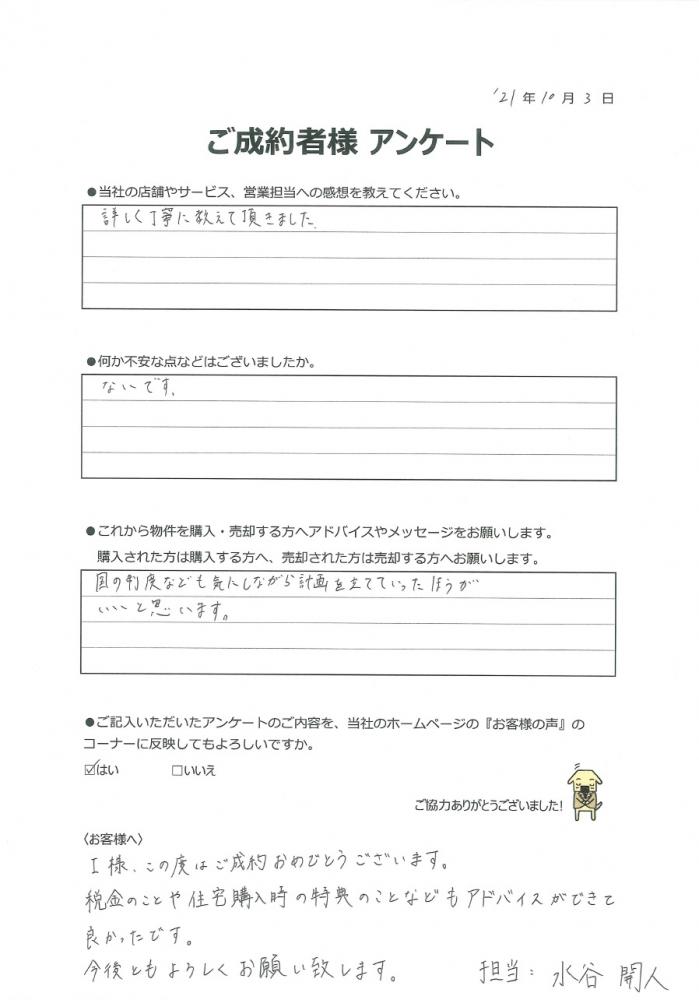 '21年10月3日
ご成約者様 アンケート
●当社の店舗やサービス、営業担当への感想を教えてください。
詳しく丁寧に教えて頂きました。
●何か不安な点などはございましたか。
ないです。
●これから物件を購入・売却する方へアドバイスやメッセージをお願いします。
購入された方は購入する方へ、売却された方は売却する方へお願いします。
国の制度なども気にしながら計画を立てていったほうが
いいと思います。
●ご記入いただいたアンケートのご内容を、当社のホームページの『お客様の声』の
コーナーに反映してもよろしいですか。
☑はい □いいえ
ご協力ありがとうございました!
〈お客様へ〉
I様、この度はご成約おめでとうございます。
税金のことや住宅購入時の特典のことなどもアドバイスができて
良かったです。
今後ともよろしくお願い致します。 担当：水谷 開人